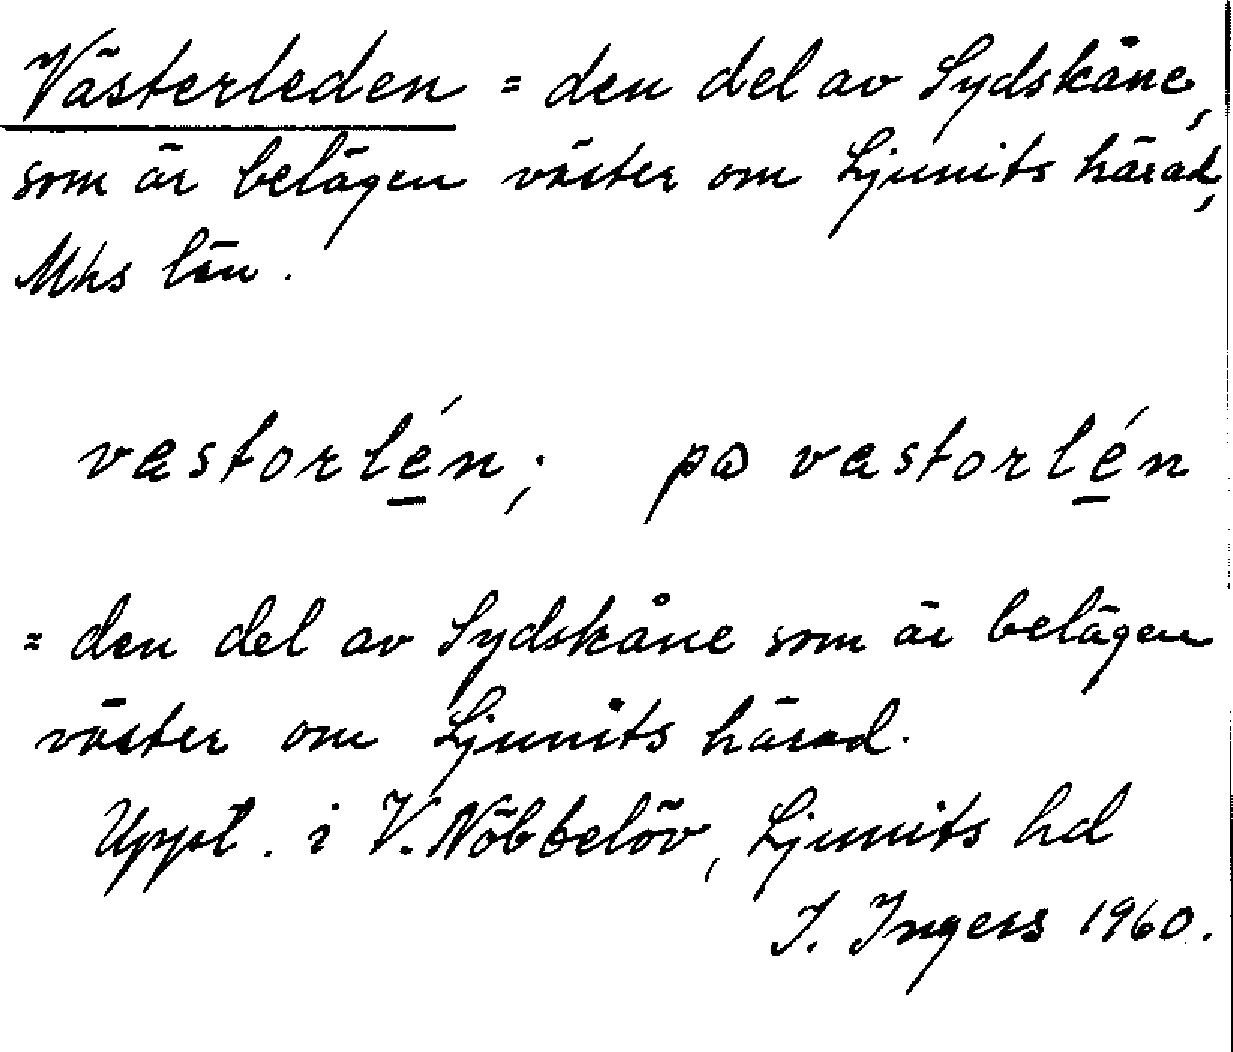 Västerleden = den del av Sydskåne,
som är belägen väster om Ljunits härad,
Mhs län.
vastorlén; pa vastorlén
= den del av Sydskåne som är belägen
väster om Ljunits härad.
Uppt. i V. Nöbbelöv, Ljunits hd
I. Ingers 1960.